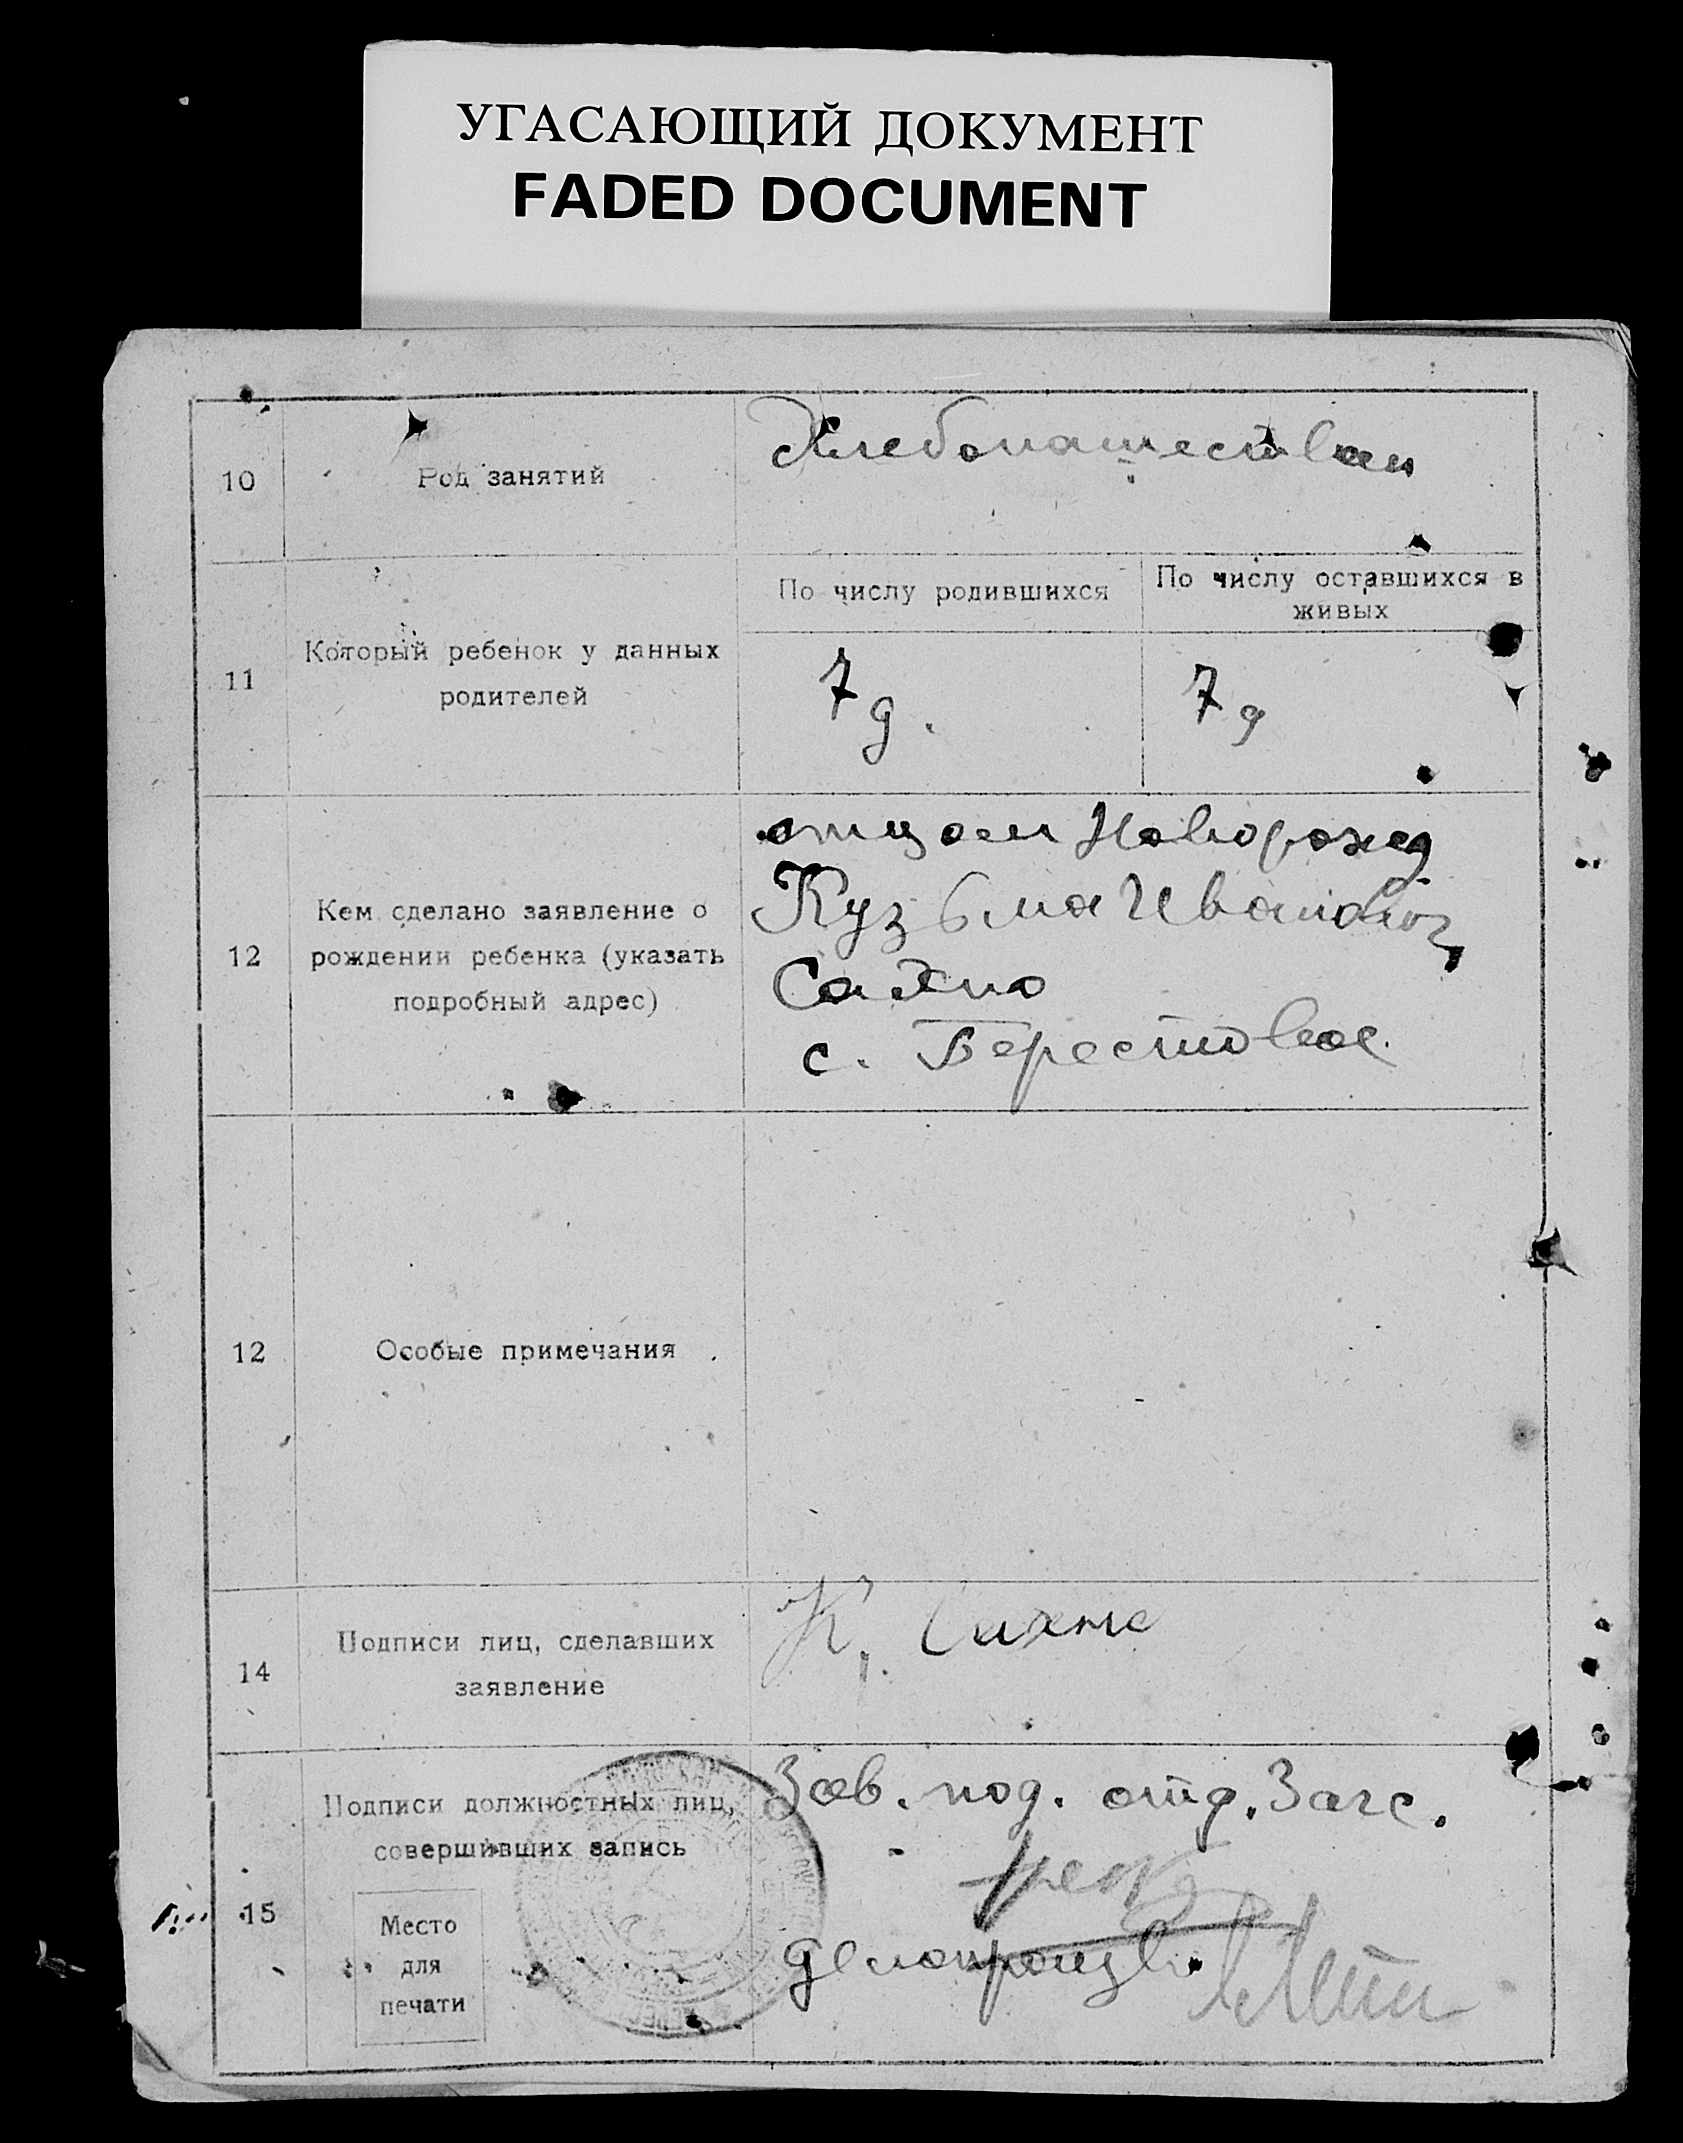 УГАСАЮЩИЙ ДОКУМЕНТ
FADED DOCUMENT
10
Род занятий
Хлебопашеством
11
Который ребенок у данных
родителей
По числу родившихся
7 д.
По числу оставшихся в
живых
7 д
12
Кем сделано заявление о
рождении ребенка (указать
подробный адрес)
отцом Новорожд
Кузьма Иванович
Сахно
с. Берестовое.
12
Особые примечания
14
Подписи лиц, сделавших
заявление
К. Сахно
15
Подписи должностных лиц,
совершивших запись
Место
для
печати
Зав. под. отд. Загс.
делопроизв.